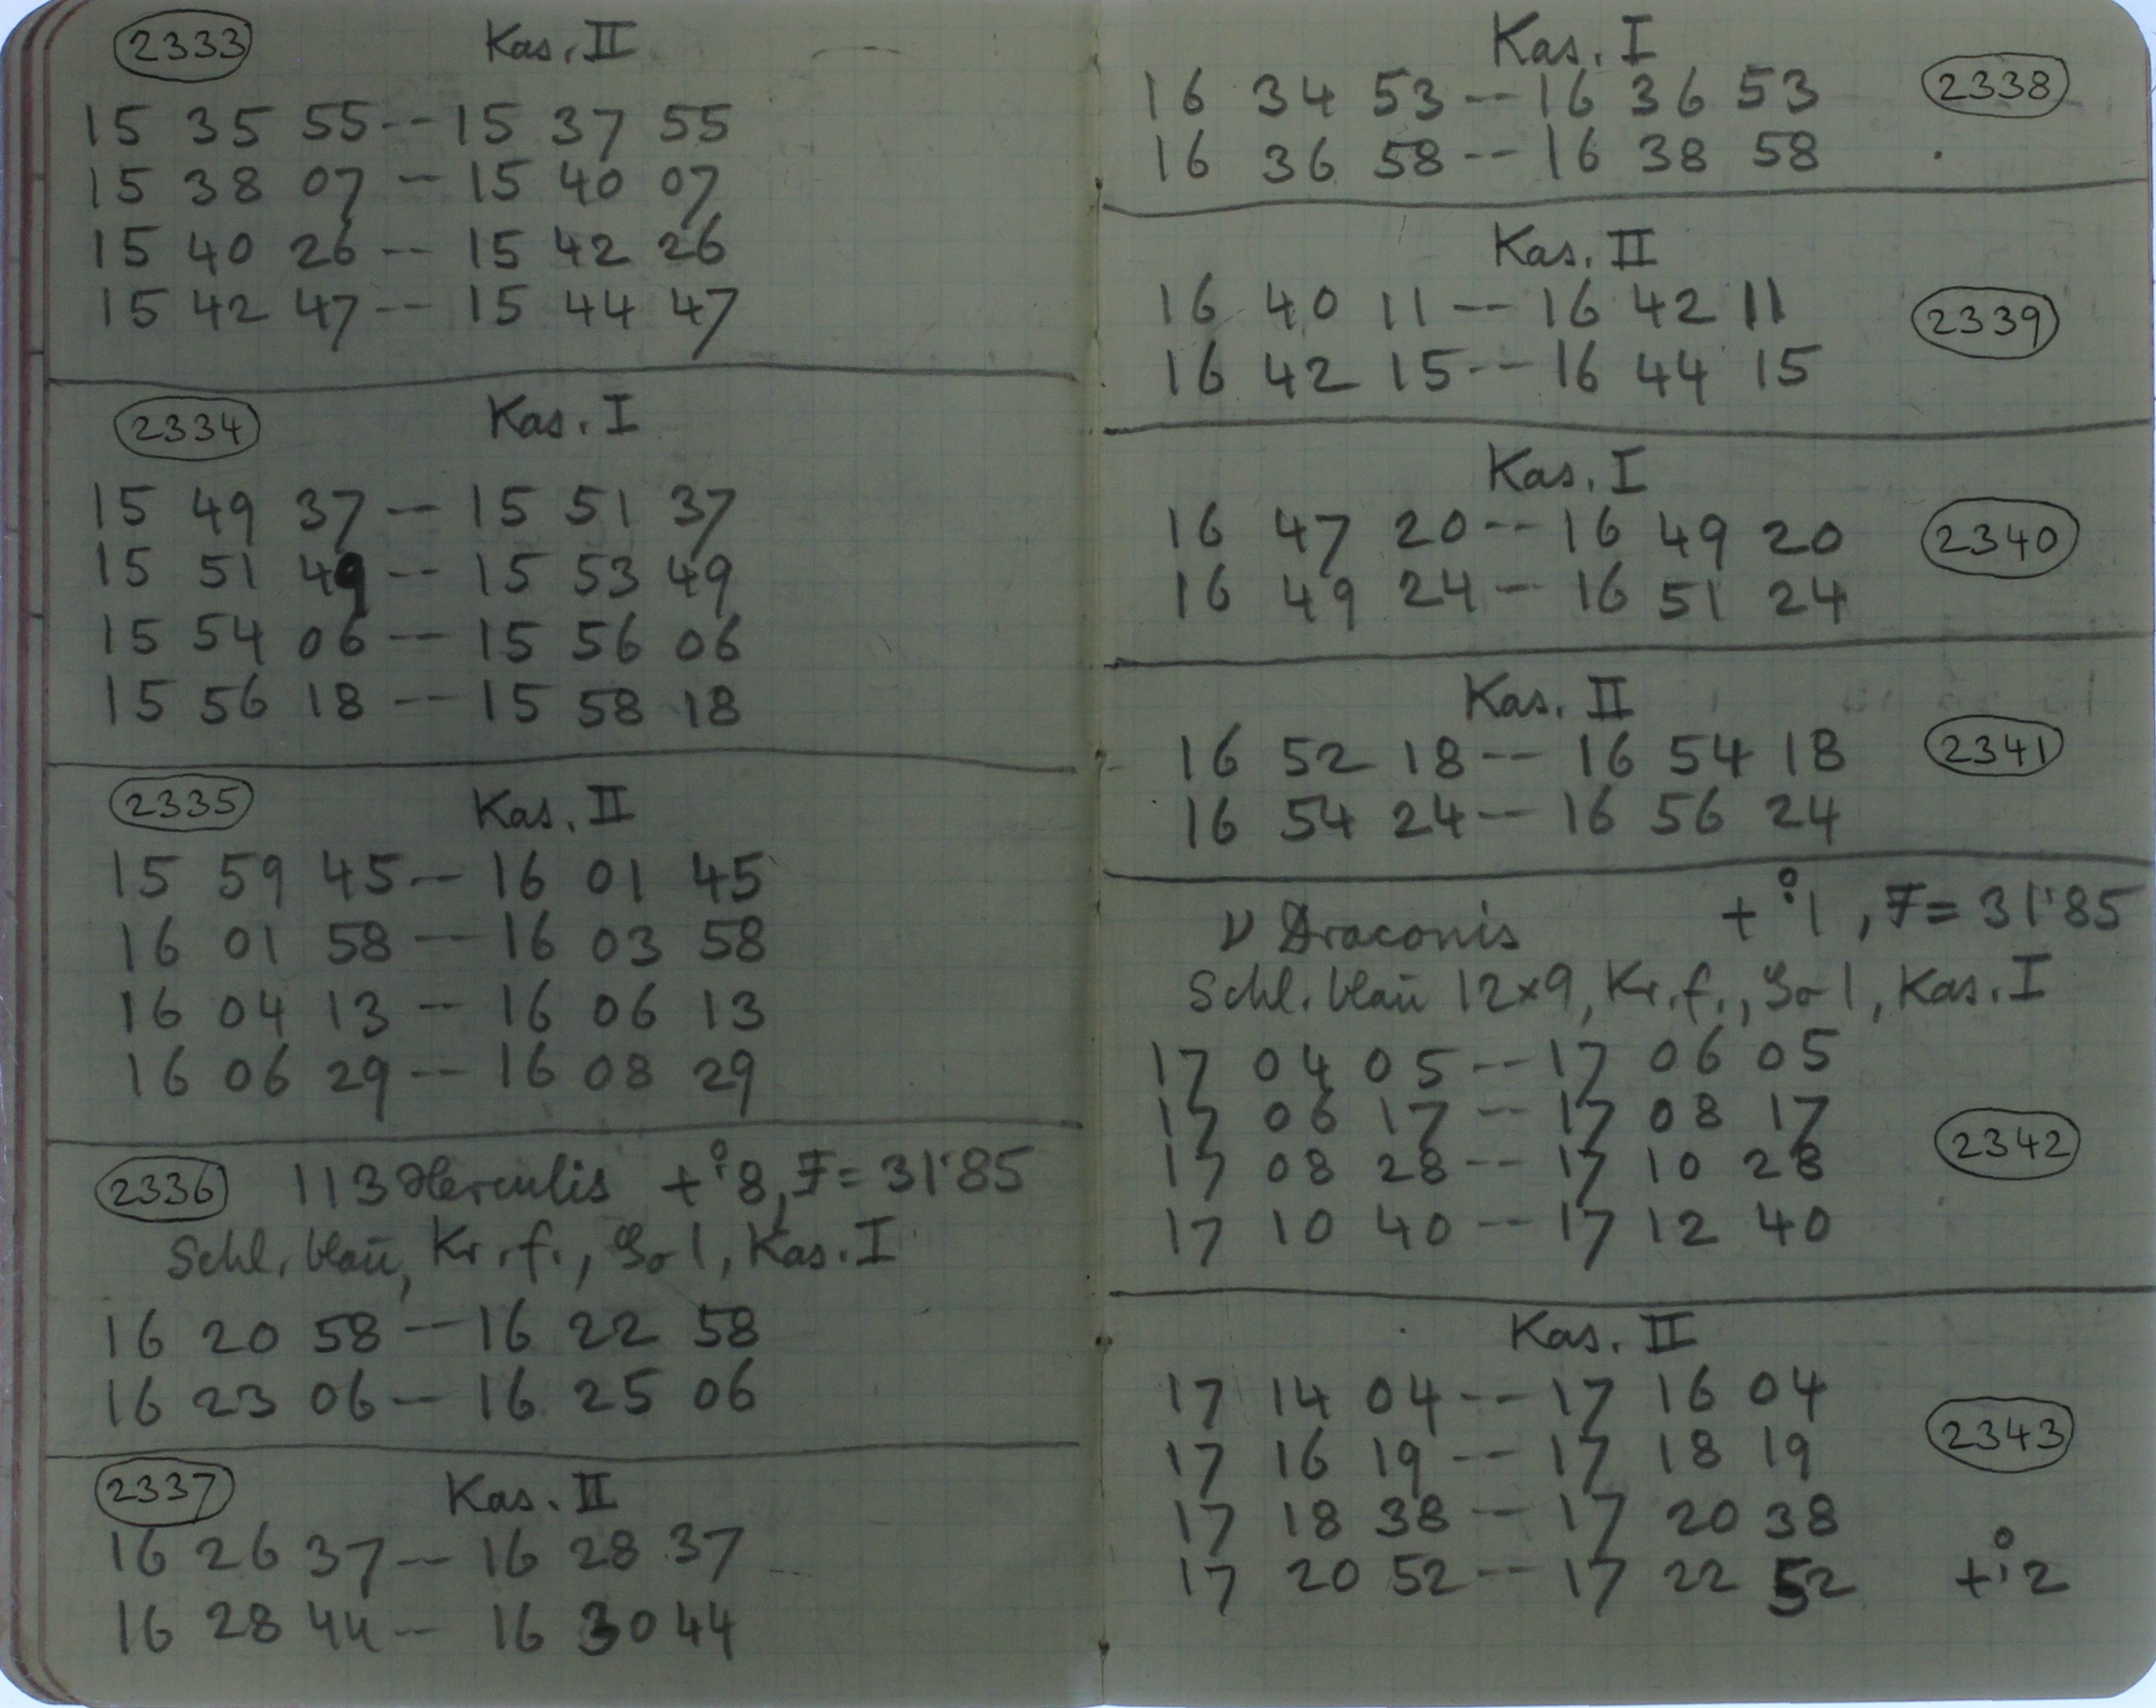 2333 Kas. II
15 35 55 -- 15 37 55
15 38 07 -- 15 40 07
15 40 26 -- 15 42 26
15 42 47 -- 15 44 47
2334 Kas. I
15 49 37 -- 15 51 37
15 51 49 -- 15 53 49
15 54 06 -- 15 56 06
15 56 18 -- 15 58 18
2335 Kas. II
15 59 45 -- 16 01 45
16 01 58 -- 16 03 58
16 04 13 -- 16 06 13
16 06 29 -- 16 08 29
2336 113 Herculis +°.8, F = 31'85
Schl. blau, Kr. f., 1, Kas. I
16 20 58 -- 16 22 58
16 23 06 -- 16 25 06
2337 Kas. II
16 26 37 -- 16 28 37
16 28 44 -- 16 30 44
Kas. I
16 34 53 -- 16 36 53 2338
16 36 58 -- 16 38 58
Kas. II
16 40 11 -- 16 42 11 2339
16 42 15 -- 16 44 15
Kas. I
16 47 20 -- 16 49 20 2340
16 49 24 -- 16 51 24
Kas. II
16 52 18 -- 16 54 18 2341
16 54 24 -- 16 56 24
ν Draconis +°.1, F = 31'85
Schl. blau 12x9, Kr. f., 1, Kas. I
17 04 05 -- 17 06 05
17 06 17 -- 17 08 17
17 08 28 -- 17 10 28 2342
17 10 40 -- 17 12 40
Kas. II
17 14 04 -- 17 16 04
17 16 19 -- 17 18 19 2343
17 18 38 -- 17 20 38
17 20 52 -- 17 22 52 +°.2